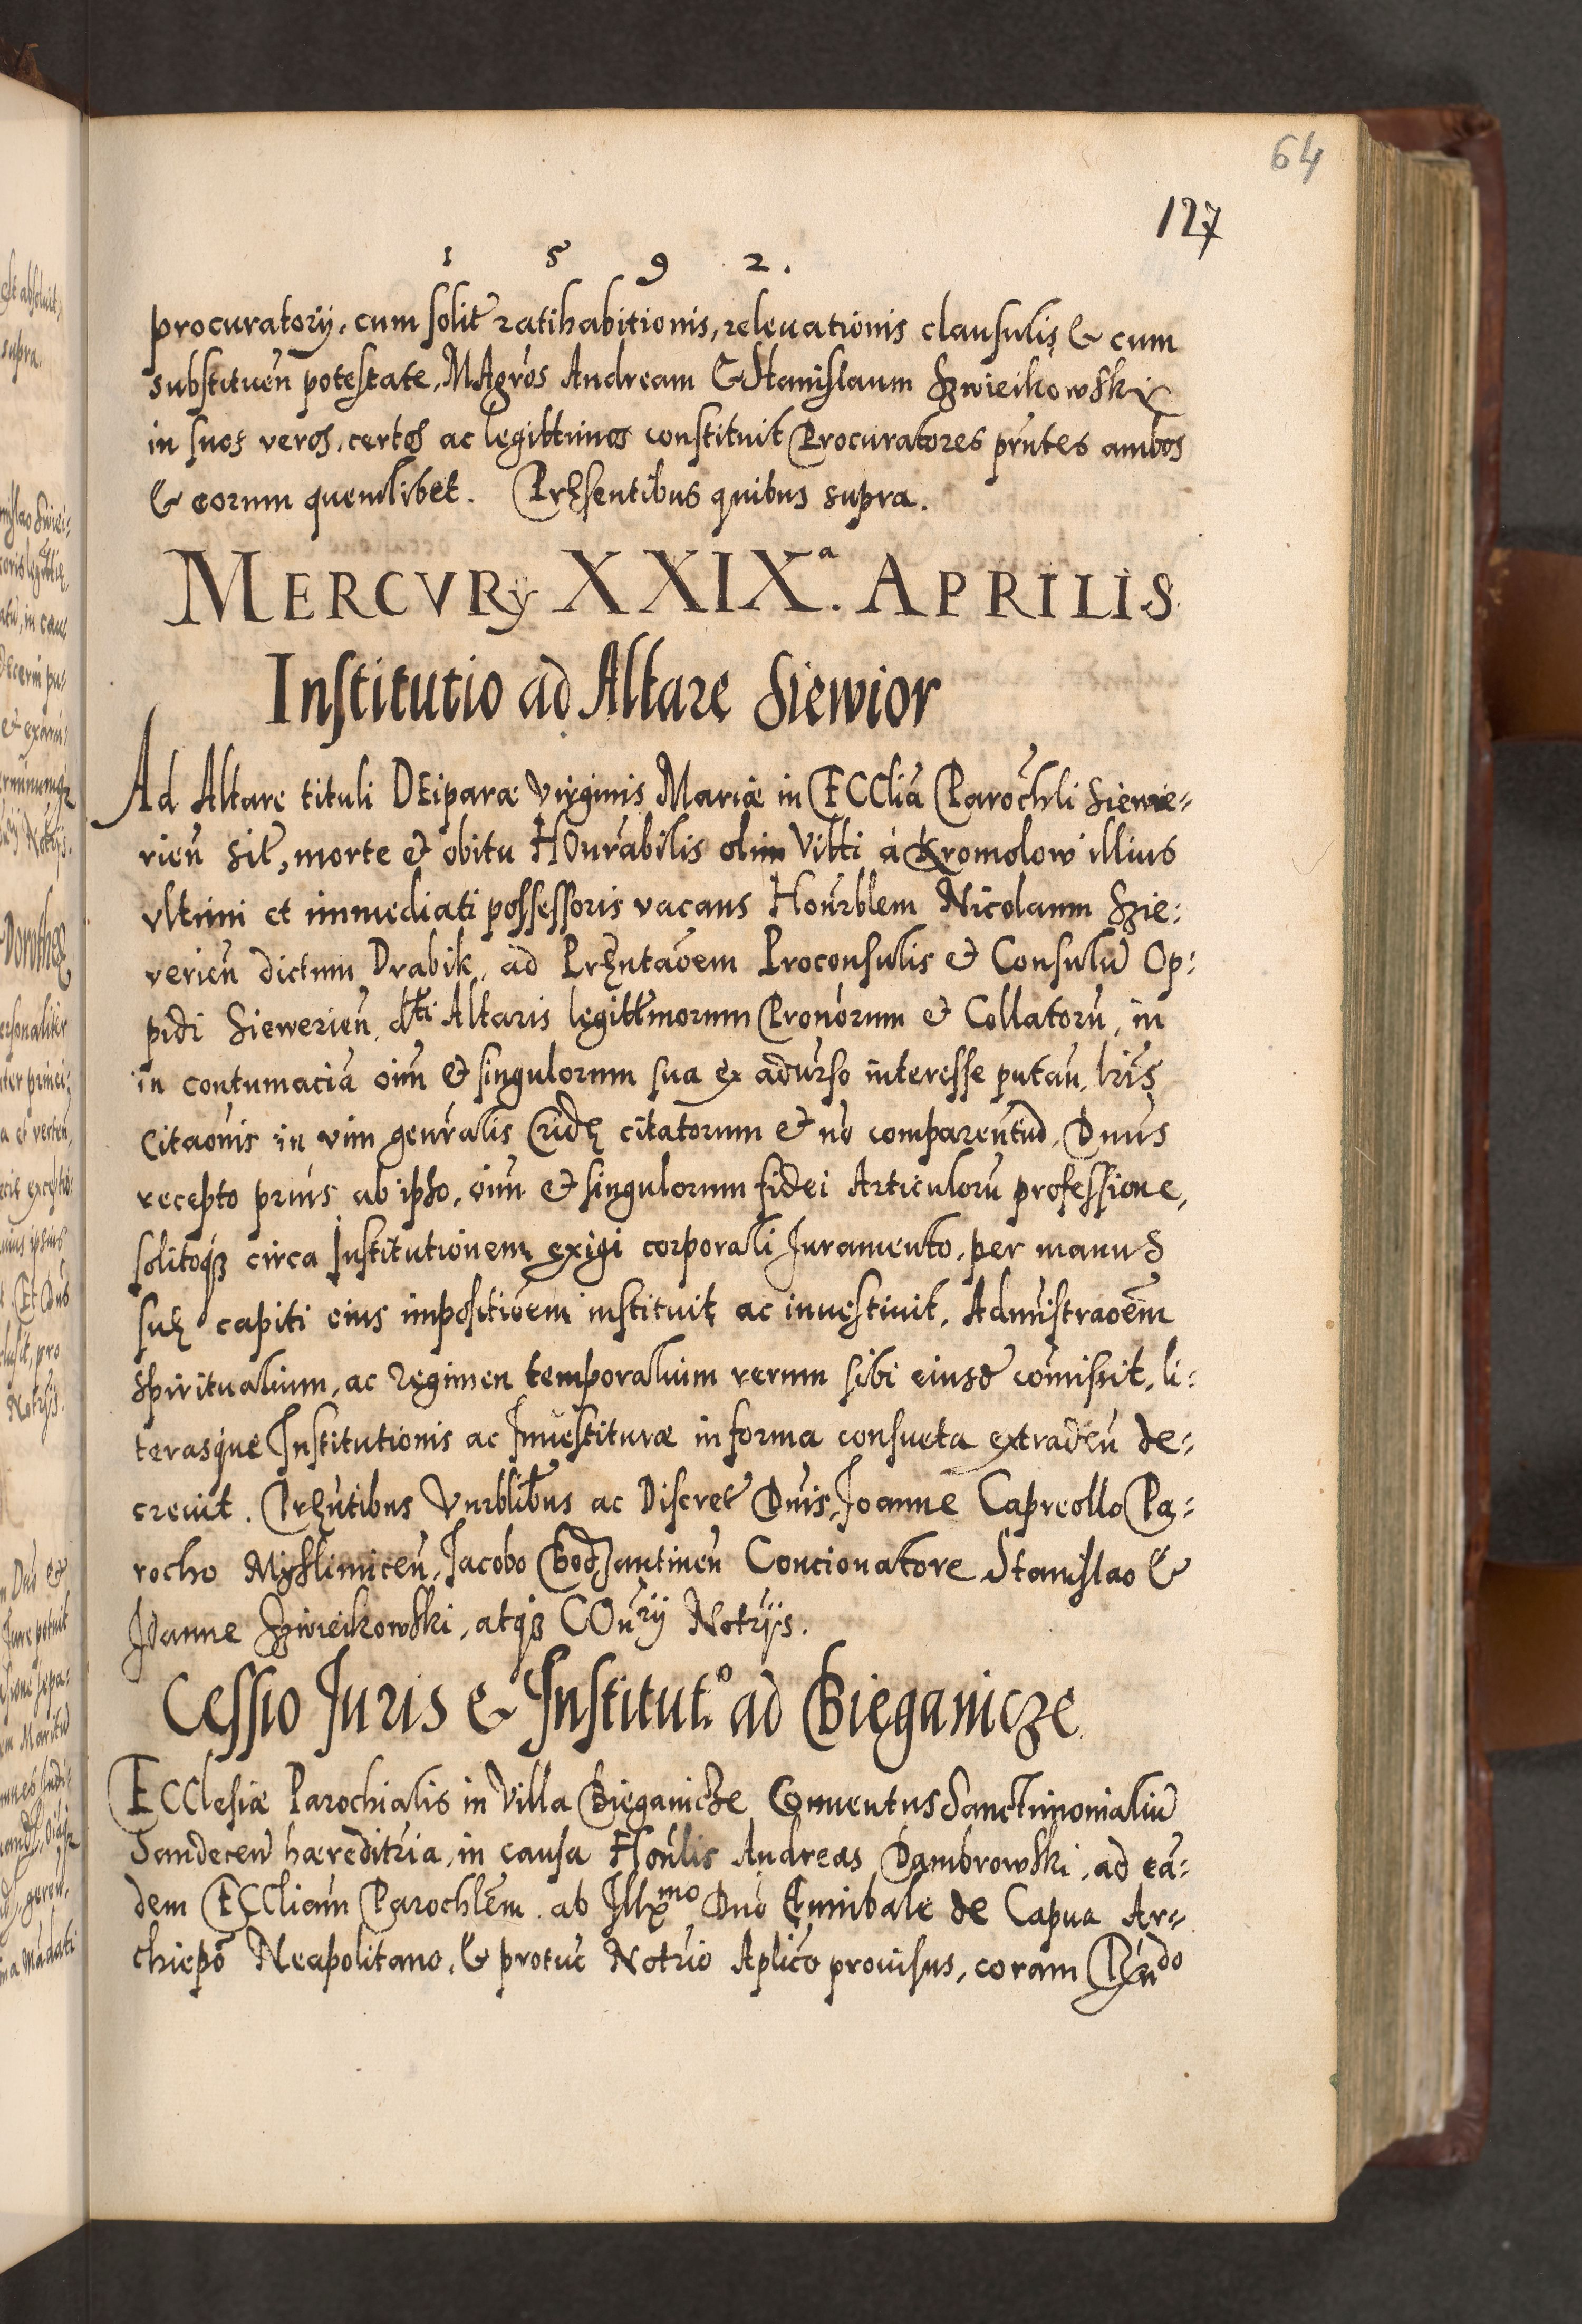 64
127
1 5 9 2.
procuratorij, cum solit ratihabitionis, releuationis clausulis & cum
substituen potestate, MAgros Andream & Stanislaum Szwieikowski
in suos veros, certos ac legittimos constituit Procuratores pñtes ambos
& eorum quemlibet. Pręsentibus quibus supra.
MERCVRij XXIXª. APRILIS
Institutio ad Altare Siewior
Ad Altare tituli DEiparæ Virginis Mariæ in ECCliã Parochli Siewe-
rien̄ sit, morte & obitu HOnrabilis olim Vitti à Kromolow illius
vltimi et immediati possessoris vacans Honrblem Nicolaum Szie:
verien̄ dictum Drabik, ad Pręntaoem Proconsulis & Consulũ Op:
pidi Siewerien̄, dtti Altaris legittmorum Pronorum & Collatorũ, in
in contumaciã oim & singulorum sua ex adurso interesse putan, lris
Citaonis in vim genralis Cridę citatorum & no comparentiũ, Dnus
recepto prius ab ipso, oim & singulorum fidei Articulorũ professione,
solitoqʒ circa Institutionem exigi corporali Juramento, per manus
suę capiti eius impositioem instituit ac inuestiuit, Admistraoem
Spiritualium, ac Regimen temporalium rerum sibi eiusd comisit, li:
terasque Institutionis ac Inuestituræ in forma consueta extraden̄ de-
creuit. Pręntibus Vnrblibus ac Discret Dnis, Joanne Capreollo Pa:
rocho Myslimicen̄, Jacobo Bodzantinen̄ Concionatore Stanislao &
Joanne Szwieikowski, atqʒ COnrij Notrijs.
Cessio Juris & Institut.º ad Bieganicze
ECClesiæ Parochialis in Villa Bieganicze Conuentus Sanctimonialiũ
Sandecen̄ hæreditria, in causa Honlis Andreas Dambrowski, ad eã:
dem ECCliam Parochlem. ab Illxmo Dno Annibale de Capua Ar-
chiepo Neapolitano, & protuc Notrio Aplico prouisus, coram Rndo